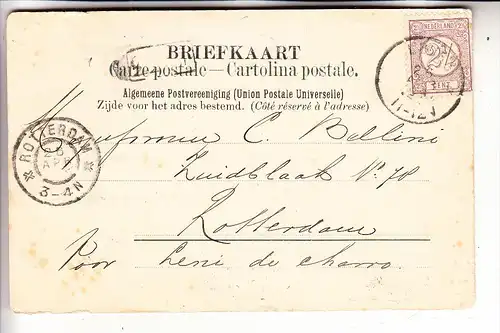 BRIEFKAART
Carte postale — Cartolina postale.
Algemeene Postvereeniging (Union Postale Universelle)
Zijde voor het adres bestemd. (Côté réservé à l'adresse)
NEDERLAND
ROTTERDAM
3-4N
11-12V
C. Bellini
Zuidblaak No. 78
Rotterdam
Voor Leni de charro.